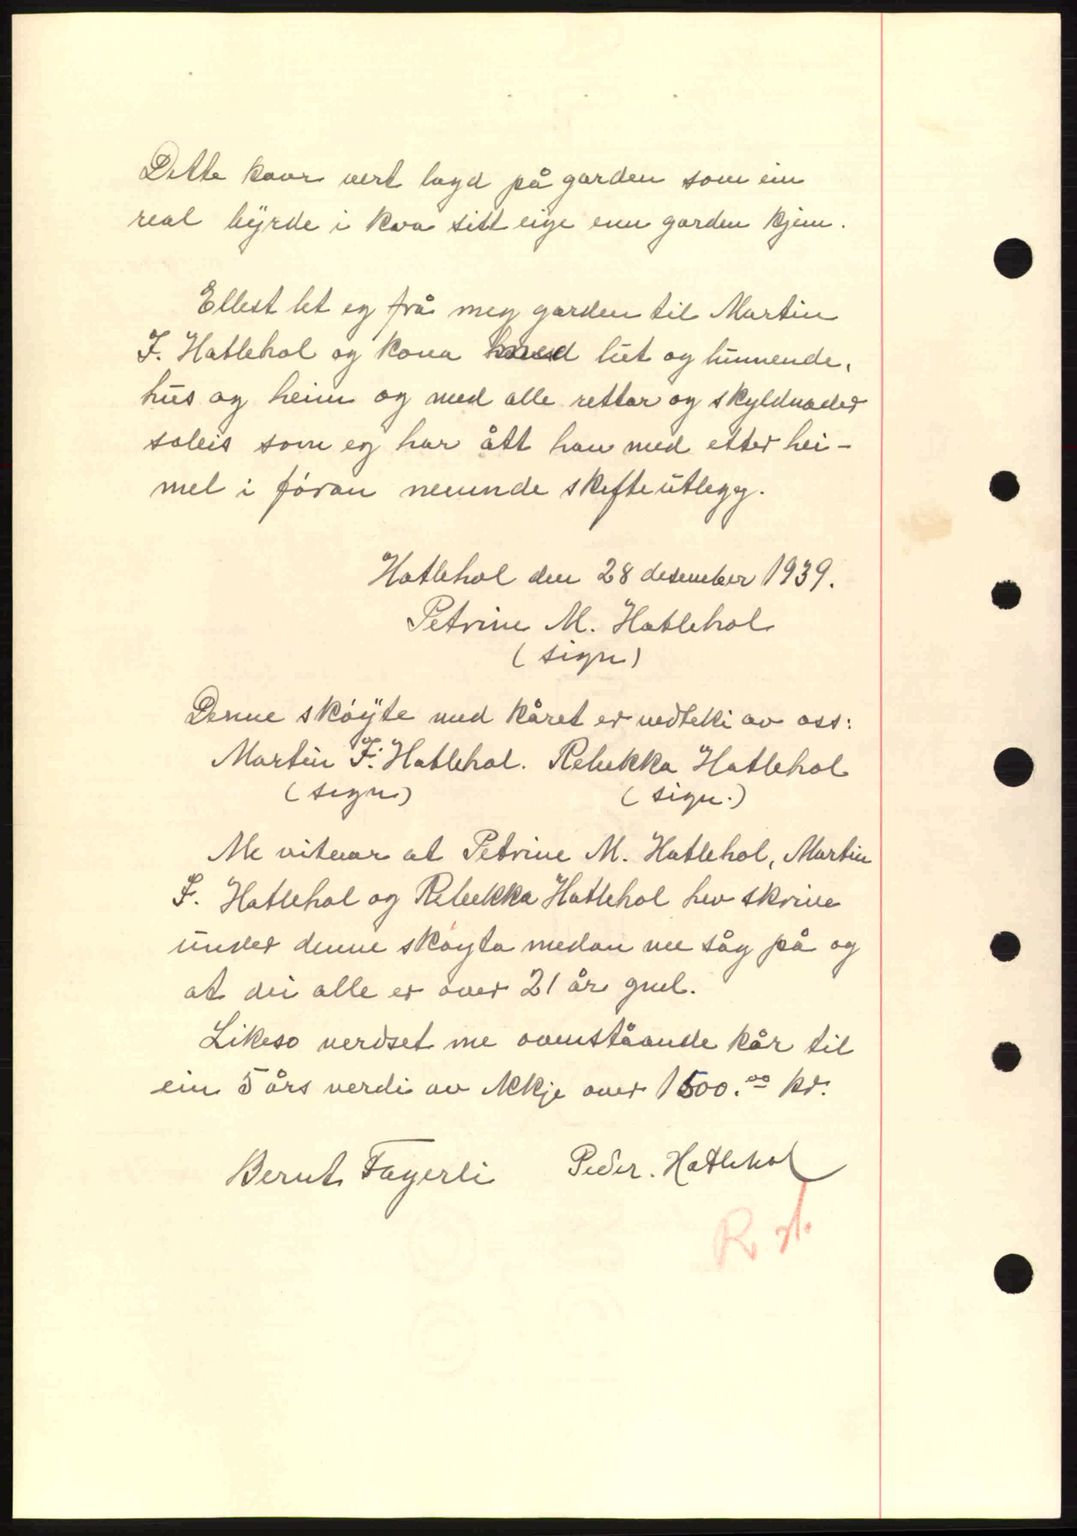 Dette kaar vert lagd på garden som ein
real byrde i kva sitt eige enn garden kjem.
Ellest let eg frå meg garden til Martin
F. Hatlehol og kona med lut og lunnende,
hus og heim og med alle rettar og skyldnader
soleis som eg har ått han med etter hei-
mel i føran nemnde skifteutlegg.
Hatlehol den 28 desember 1939.
Petrine M. Hatlehol
(sign)
Denne skøyte med kåret er vedteki av oss:
Martin F. Hatlehol. Rebekka Hatlehol
(sign) (sign.)
Me vitnar at Petrine M. Hatlehol, Martin
F. Hatlehol og Rebekka Hatlehol hev skrive
under denne skøyta medan me såg på og
at dei alle er over 21 år gml.
Likeso verdset me ovenståande kår til
ein 5 års verdi av ikkje over 1500.00 kr.
Bernt Fagerli Peder. Hatlehol